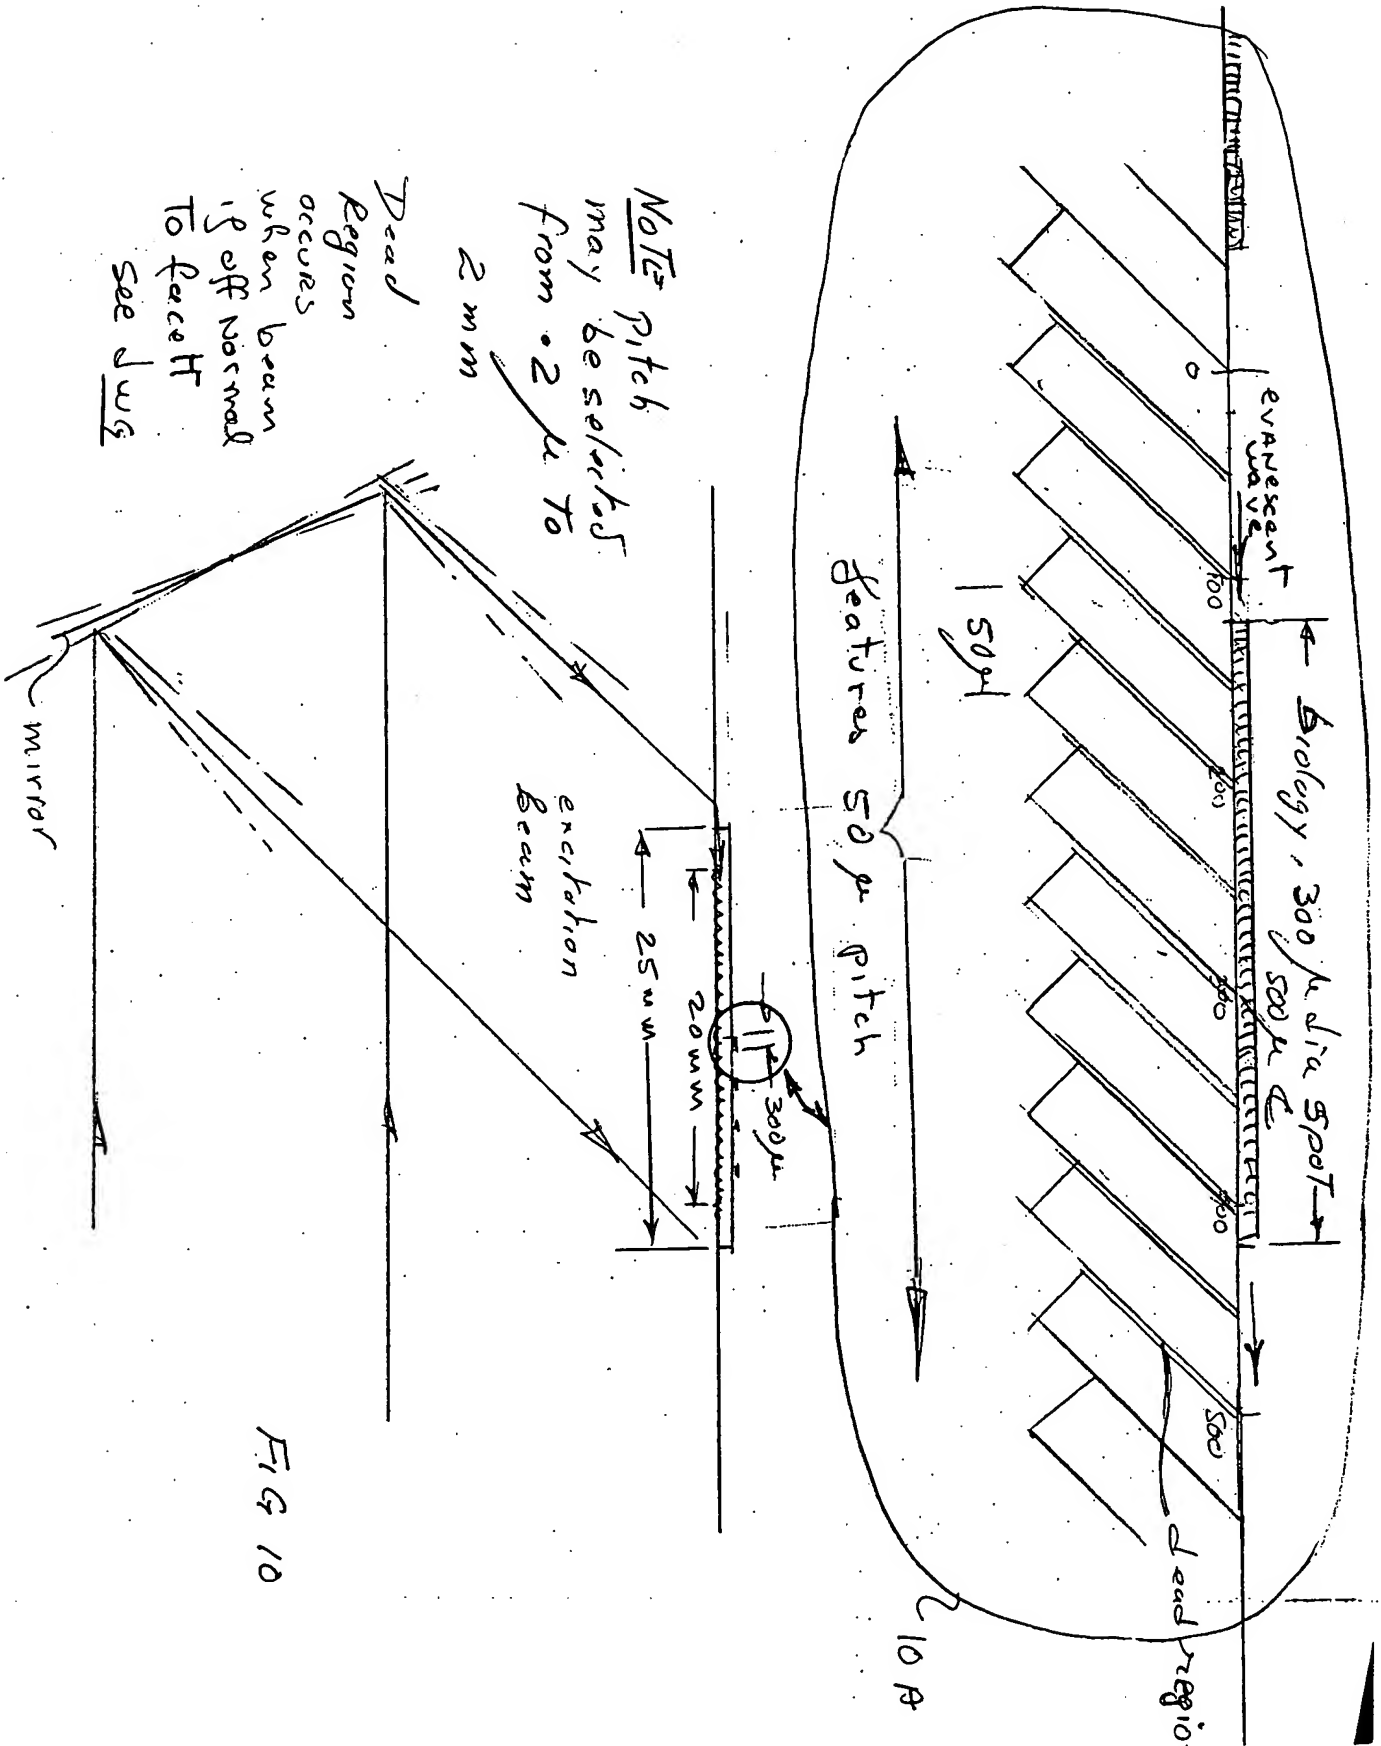 evanescent
wave
biology, 300 µ dia spot
500 µ ℄
0
100
200
300
400
500
dead regio
50µ
features 50 µ pitch
10 A
300µ
20mm
25mm
excitation
beam
NOTE pitch
may be selected
from .2 µ to
2 mm
Dead
Region
occurs
when beam
is off Normal
To facett
see dwg
mirror
FIG 10